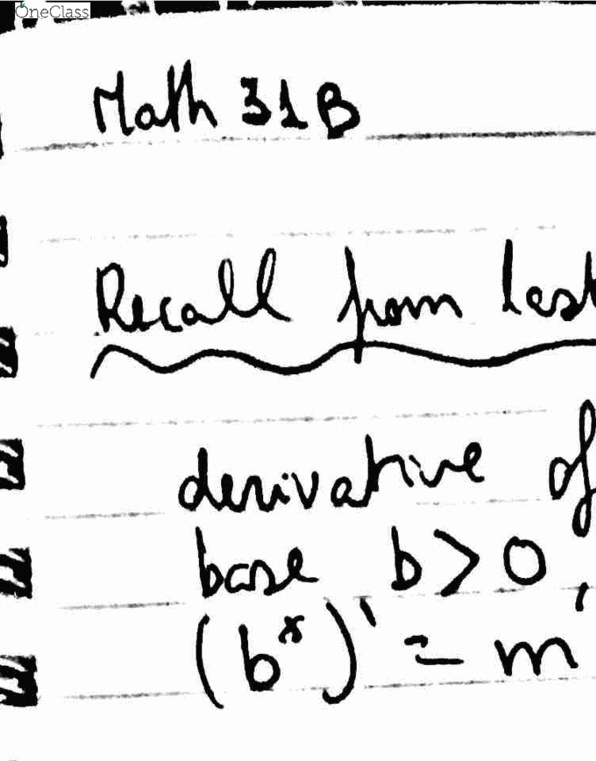 OneClass
Math 31B
Recall from last
derivative of
base b > 0,
(bˣ)' = m